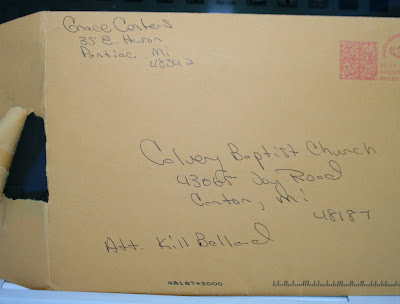 Grace Centers
35 E. Huron
Pontiac Mi
48342
Calvery Baptist Church
43065 Joy Road
Canton, Mi
48187
Att. Kill Ballard
48187+2000